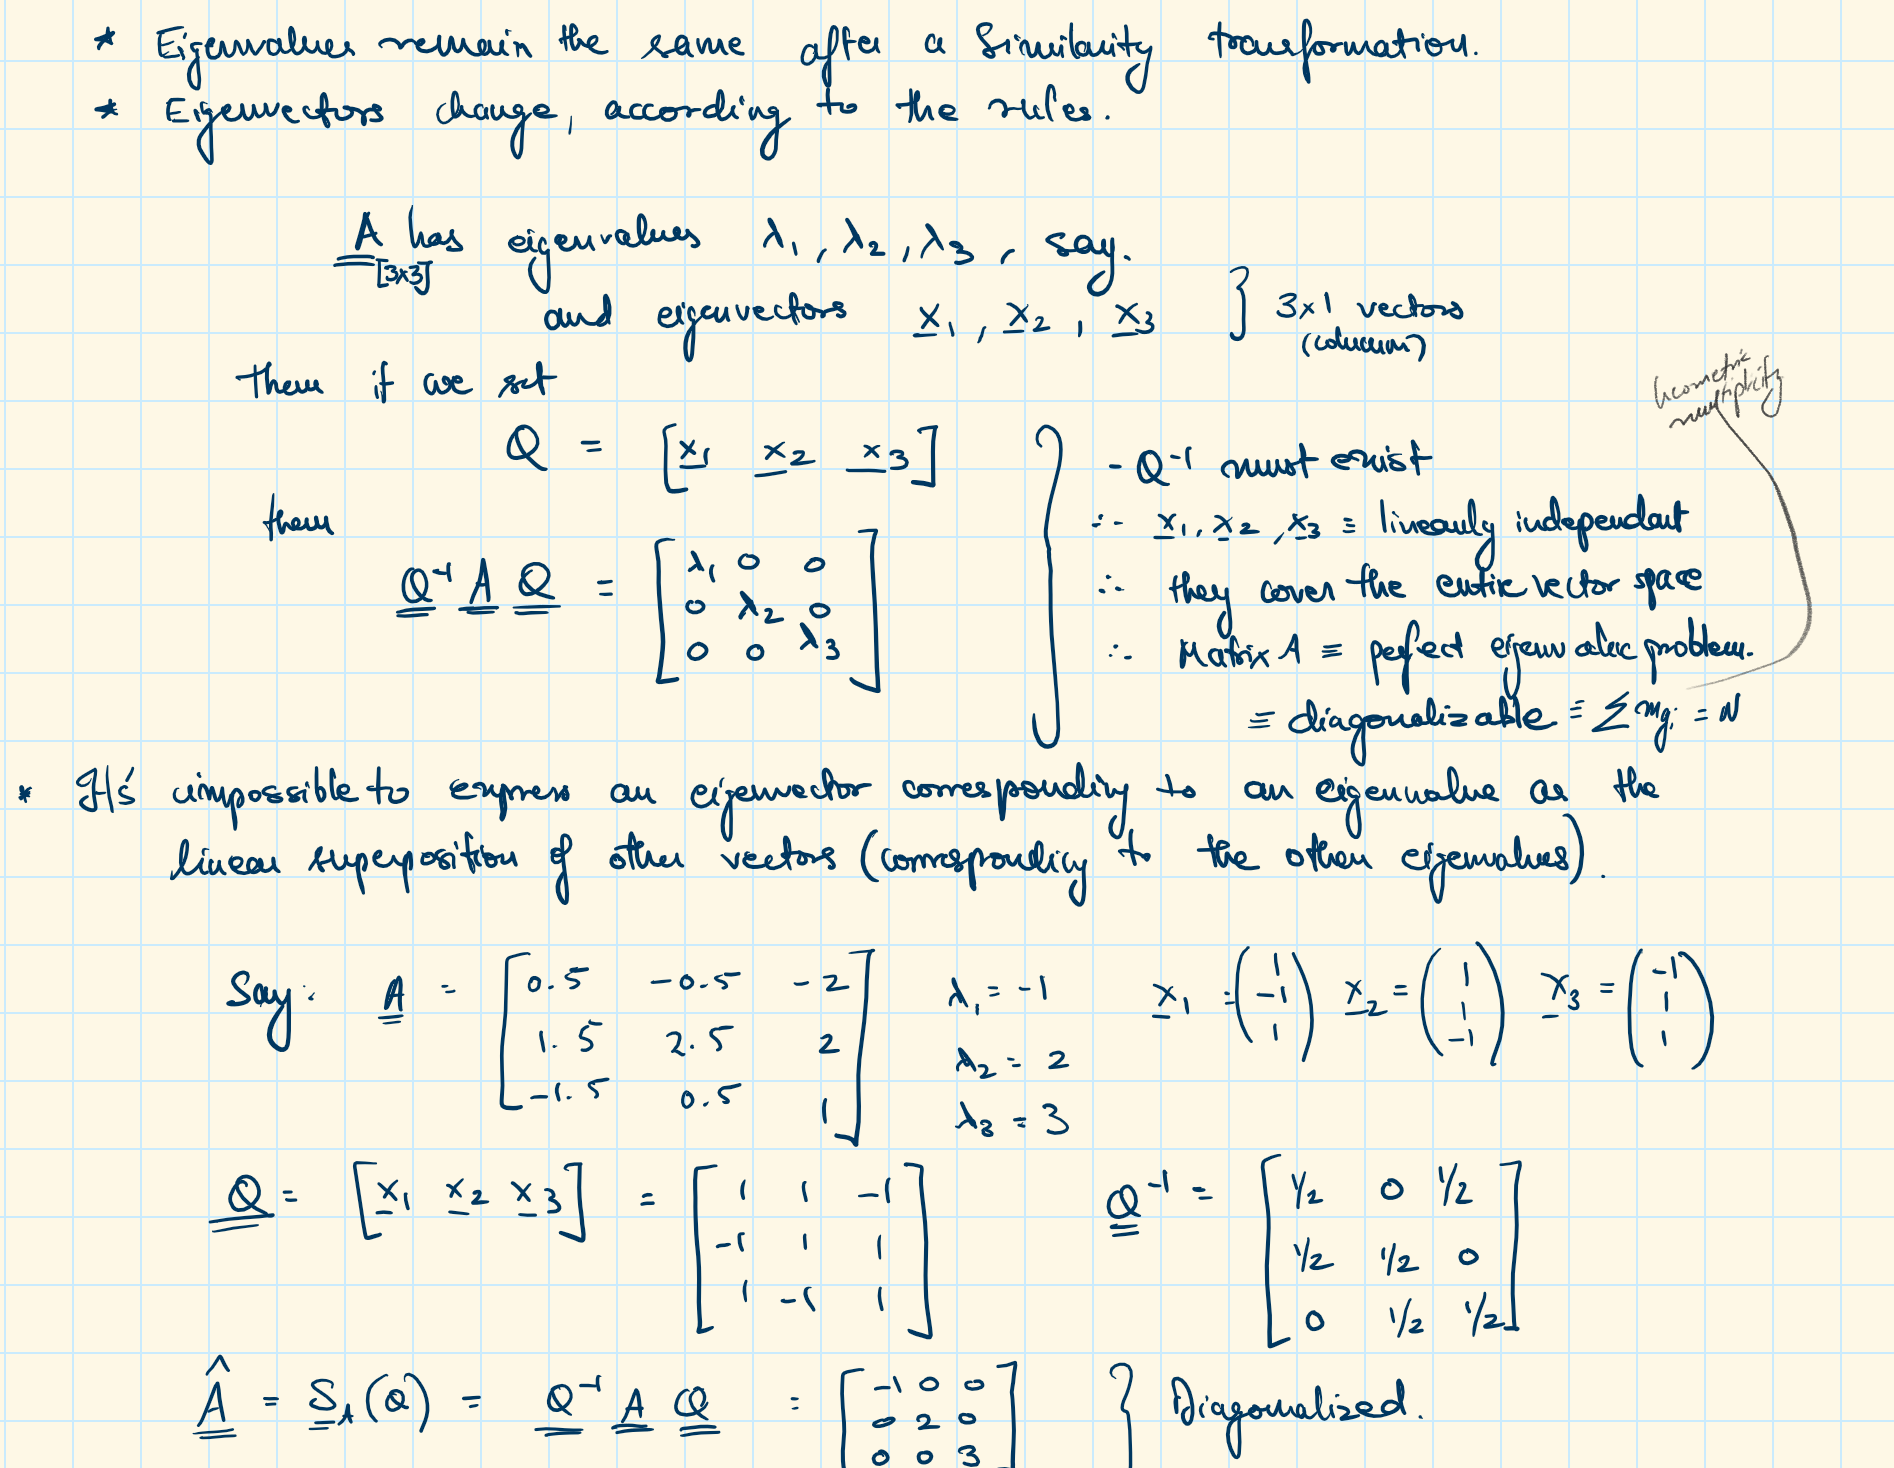 * Eigenvalues remain the same after a Similarity transformation.
* Eigenvectors change, according to the rules.
A [3x3] has eigenvalues λ₁, λ₂, λ₃, say.
and eigenvectors x₁, x₂, x₃ } 3x1 vectors
(column)
Geometric
multiplicity
Then if we set
Q = [x₁ x₂ x₃]
- Q⁻¹ must exist
then
∴ x₁, x₂, x₃ ≡ linearly independant
Q⁻¹ A Q = [λ₁ 0 0
0 λ₂ 0
0 0 λ₃]
∴ they cover the entire vector space
∴ Matrix A ≡ perfect eigenvalue problem.
≡ diagonalizable ≡ ∑ mgᵢ = N
* It's impossible to express an eigenvector corresponding to an eigenvalue as the
linear superposition of other vectors (corresponding to the other eigenvalues).
Say: A = [0.5 -0.5 -2
1.5 2.5 2
-1.5 0.5 1]
λ₁ = -1
λ₂ = 2
λ₃ = 3
x₁ = (1 -1 1) x₂ = (1 1 -1) x₃ = (-1 1 1)
Q = [x₁ x₂ x₃] = [1 1 -1
-1 1 1
1 -1 1]
Q⁻¹ = [1/2 0 1/2
1/2 1/2 0
0 1/2 1/2]
Â = S_A(Q) = Q⁻¹ A Q = [-1 0 0
0 2 0
0 0 3] } Diagonalized.